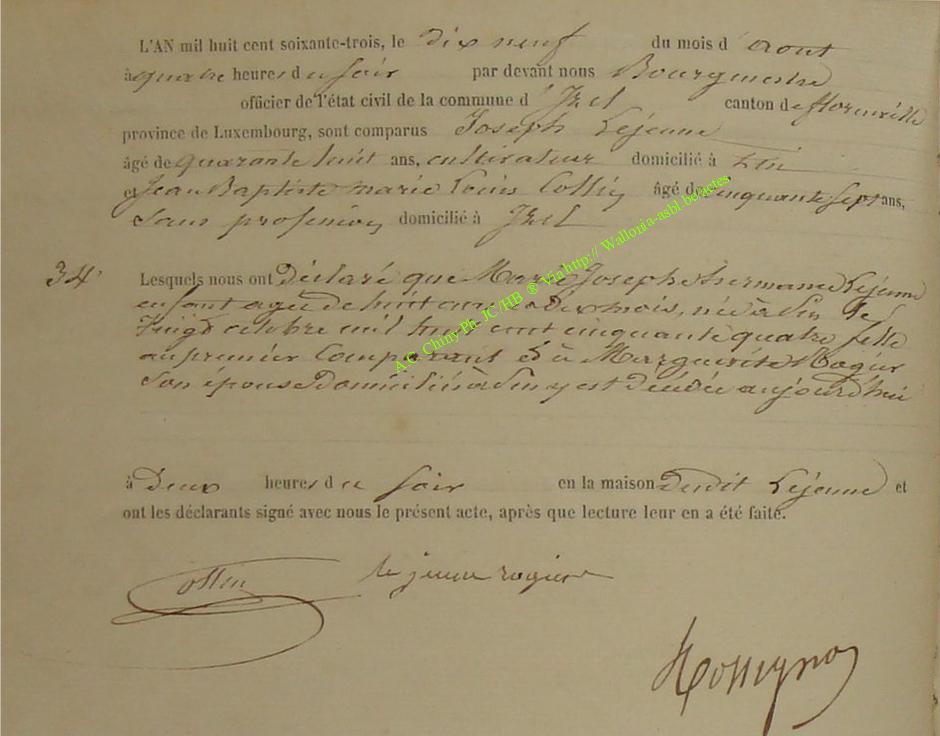 L'AN mil huit cent soixante-trois, le dix neuf du mois d'aout
à quatre heures du soir par devant nous Bourgmestre
officier de l'état civil de la commune d'Izel canton de florenville
province de Luxembourg, sont comparus Joseph Lejeune
âgé de quarante huit ans, cultivateur domicilié à
et Jean Baptiste marie Louis Collin âgé de cinquante sept ans,
sans profession domicilié à Izel
34 Lesquels nous ont déclaré que Marie Joseph hermance Lejeune
enfant agée de huit ans dix mois, née à le
Vingt octobre mil huit cent cinquante quatre fille
au premier Comparant & à Marguérite Rogier
son épouse Domiciliée à y est décédée aujourd'hui
à Deux heures du soir en la maison Dudit Lejeune et
ont les déclarants signé avec nous le présent acte, après que lecture leur en a été faite.
Collin le jeune rogier
Rossignon
A.G. Chiny Ph. JC/HB ® Via http:// Wallonia-asbl.be/actes